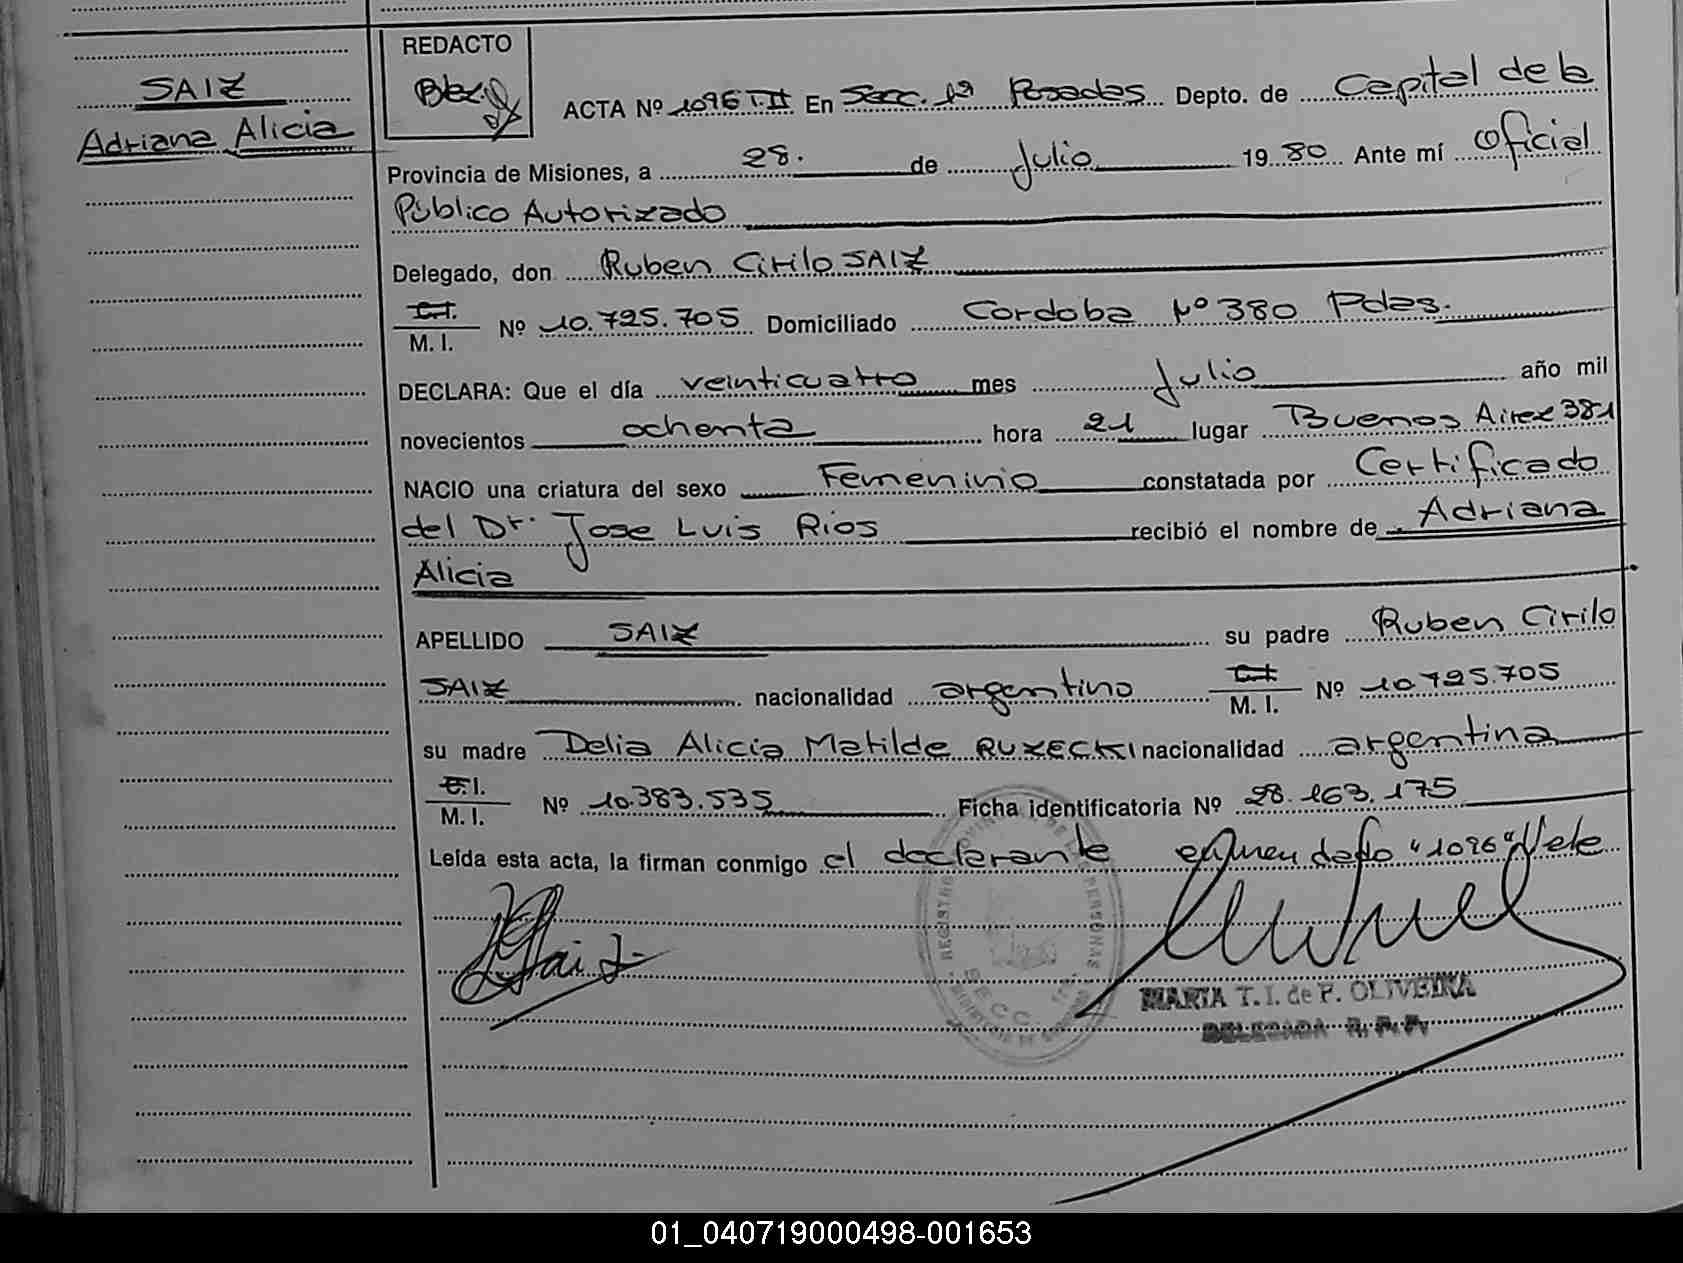 REDACTO
SAIZ
Adriana Alicia
ACTA Nº 1096 T. II En Secc. 1ª Posadas Depto. de Capital de la
Provincia de Misiones, a 28. de Julio 1980 Ante mí Oficial
Público Autorizado
Delegado, don Ruben Cirilo SAIZ
C.I.
M. I. Nº 10.725.705 Domiciliado Cordoba Nº 380 Pdas.
DECLARA: Que el día veinticuatro mes Julio año mil
novecientos ochenta hora 21 lugar Buenos Aires 381
NACIO una criatura del sexo Femenino constatada por Certificado
del Dr. Jose Luis Rios recibió el nombre de Adriana
Alicia
APELLIDO SAIZ su padre Ruben Cirilo
SAIZ nacionalidad argentino C.I. M. I. Nº 10.725.705
su madre Delia Alicia Matilde RUZECKI nacionalidad argentina
C.I.
M. I. Nº 10.383.535 Ficha identificatoria Nº 28.163.175
Leída esta acta, la firman conmigo el declarante enmendado "1096" Vale
Saiz
MARIA T. I. de P. OLIVEIRA
DELEGADA R. P. P.
01_040719000498-001653